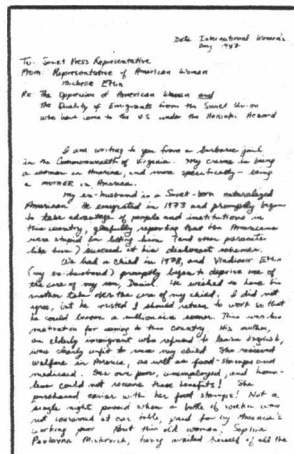 Date International Women's
Day 1987
To: Soviet Press Representative
From: Representative of American Women
Michele Etlin
Re: The Oppression of American Women and
The Quality of Emigrants from the Soviet Union
who have come to the US under the Helsinki Accord
I am writing to you from a suburban jail
in the Commonwealth of Virginia. My crime is being
a woman in America, and more specifically - being
a MOTHER in America.
My ex-husband is a Soviet-born naturalized
American. He emigrated in 1973 and promptly began
to take advantage of people and institutions in
this country, gleefully reporting that the Americans
were stupid for letting him (and other parasites
like him) succeed at his dishonest schemes.
We had a child in 1978, and Vladimir Etlin
(my ex-husband) promptly began to deprive me of
the care of my son, Daniel. He wished to have his
mother take over the care of my child. I did not
agree, but he insisted I should return to work so that
he could become a millionaire sooner. This was his
motivation for coming to this country. His mother,
an elderly immigrant who refused to learn English,
was clearly unfit to raise my child. She received
welfare in America, as well as food-stamps and
medicaid. Our own poor, unemployed, and home-
less could not receive these benefits! She
purchased caviar with her food stamps! Not a
single night passed when a bottle of vodka was
not consumed at our table, paid for by America's
working poor. But this old woman,
Pavlovna, having availed herself of all the